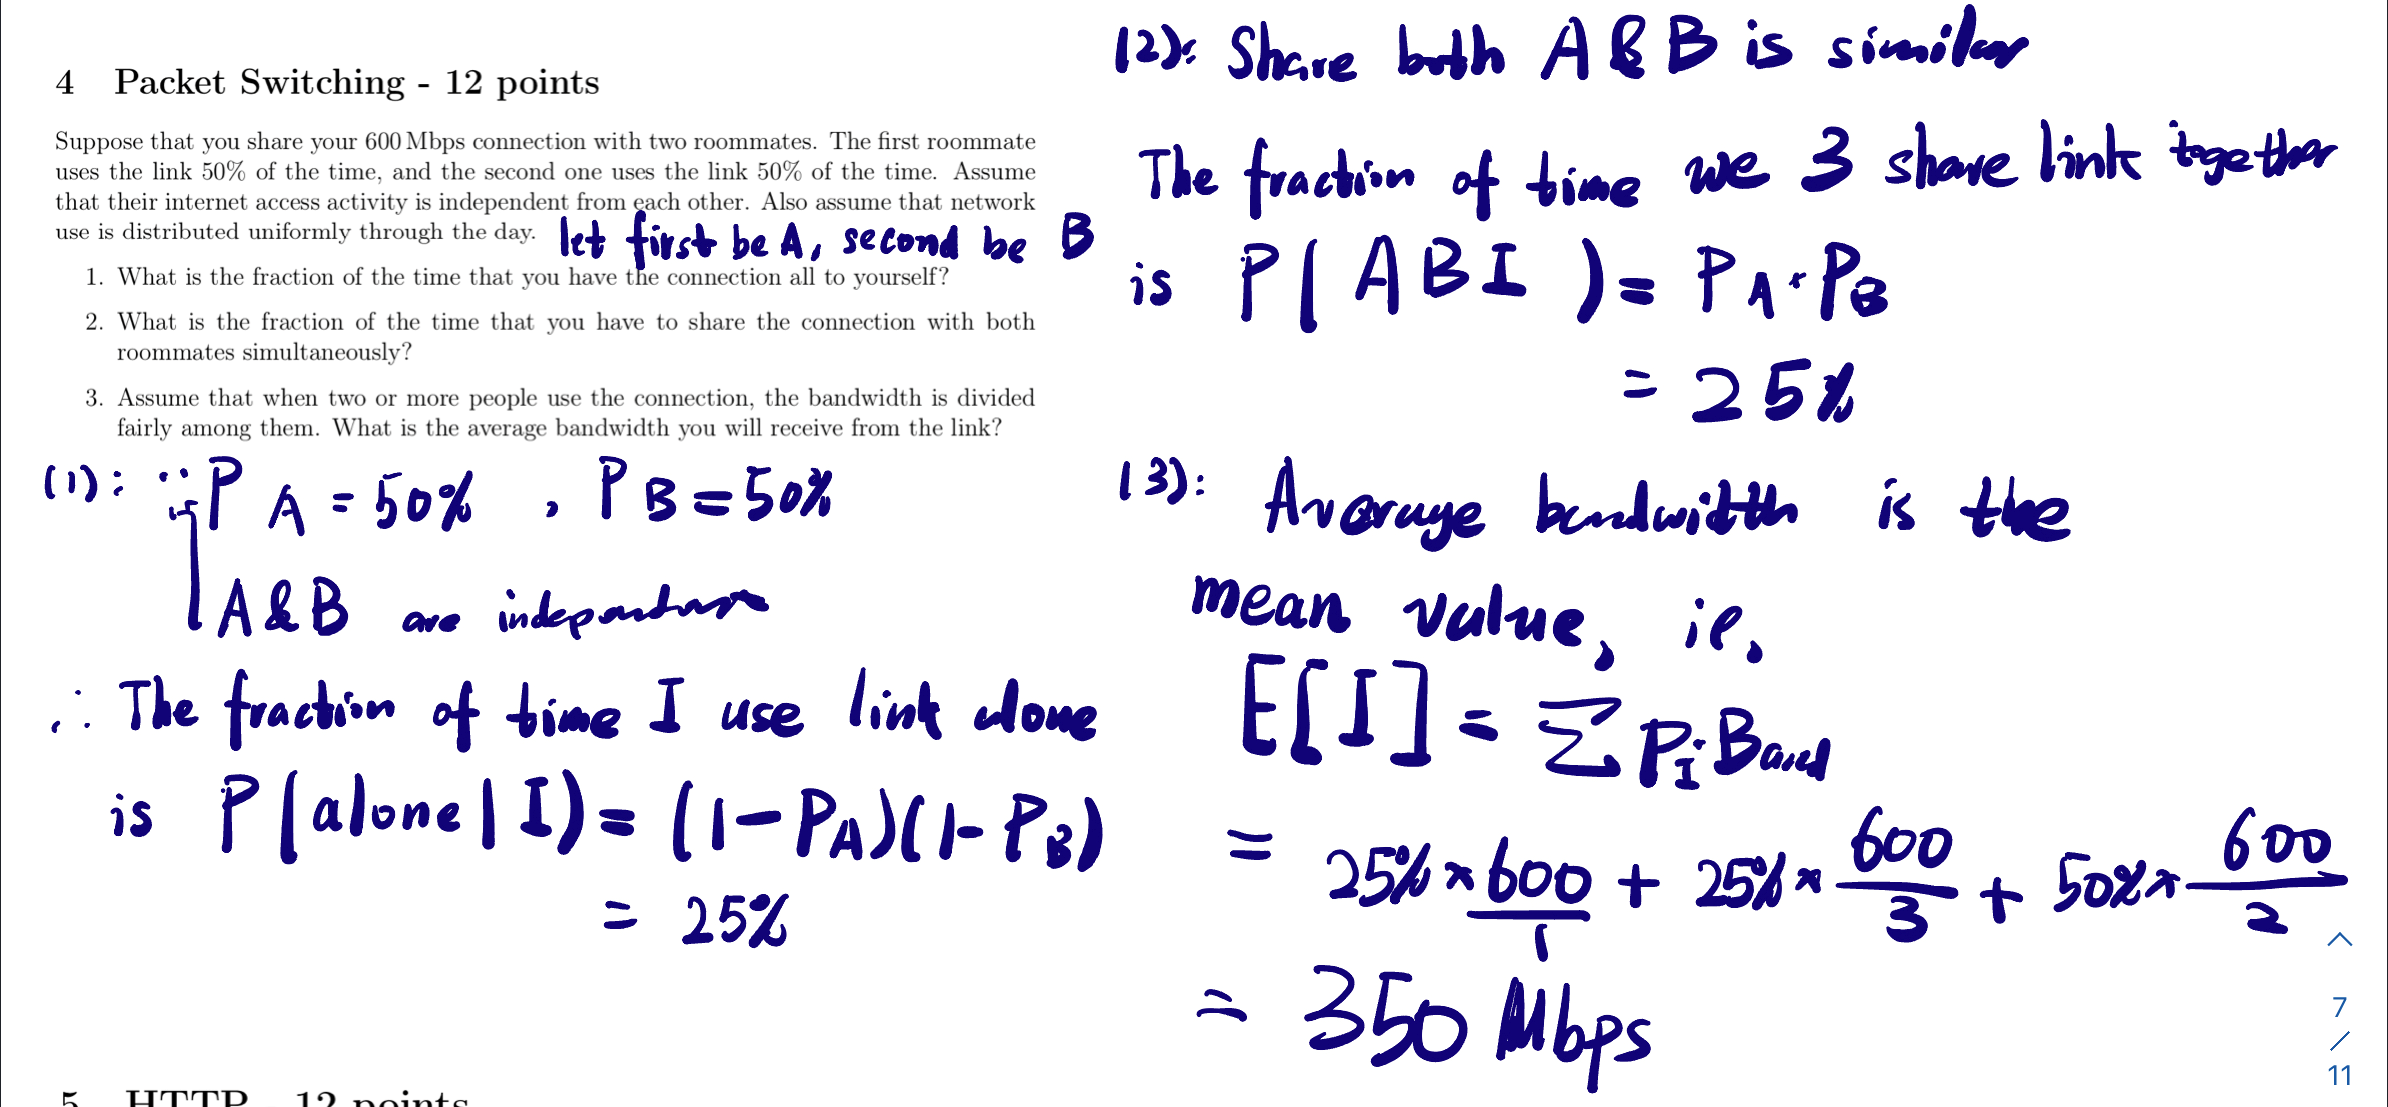 4 Packet Switching - 12 points
Suppose that you share your 600 Mbps connection with two roommates. The first roommate
uses the link 50% of the time, and the second one uses the link 50% of the time. Assume
that their internet access activity is independent from each other. Also assume that network
use is distributed uniformly through the day.
let first be A, second be B
1. What is the fraction of the time that you have the connection all to yourself?
2. What is the fraction of the time that you have to share the connection with both
roommates simultaneously?
3. Assume that when two or more people use the connection, the bandwidth is divided
fairly among them. What is the average bandwidth you will receive from the link?
(1): ∵ P_A = 50% , P_B = 50%
A & B are
∴ The fraction of time I use link alone
is P(alone | I) = (1-P_A)(1-P_B)
= 25%
(2): Share both A & B is similar
The fraction of time we 3 share link together
is P(ABI) = P_A · P_B
= 25%
(3): Average bandwidth is the
mean value, ie,
E[I] = ∑ P_I · Band
= 25% × 600/1 + 25% × 600/3 + 50% × 600/2
= 350 Mbps
7
/
11
5 HTTP - 12 points